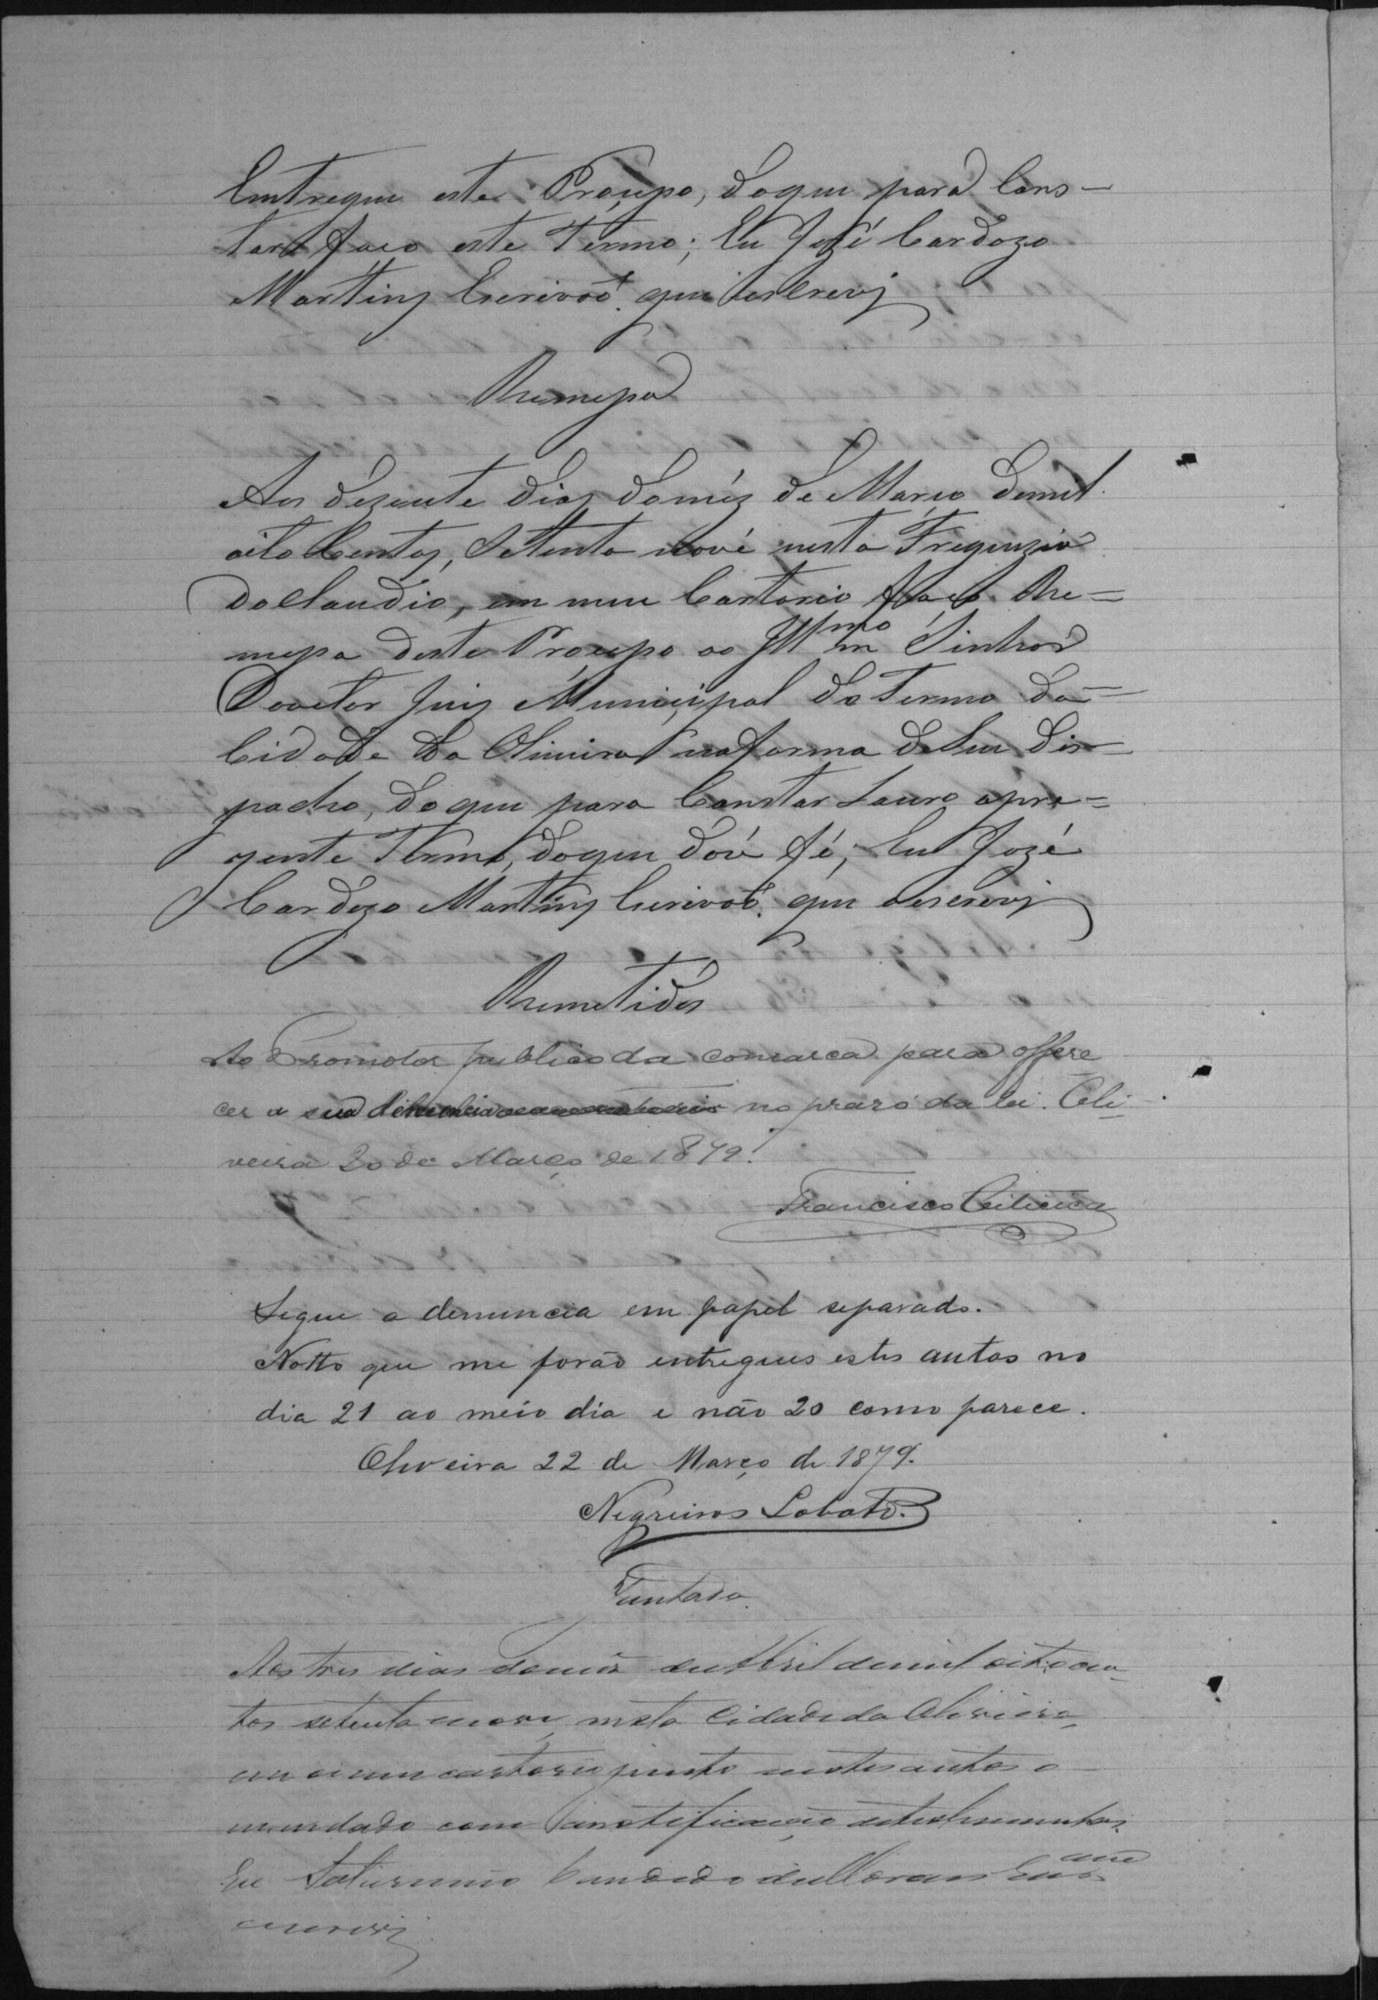 Emtregue este Proceço, do que para Cons-
tar faço este Termo; Eu José Cardozo
Martins Escrivaõ. que escrevy
Remessa
Aos dezente dias do mêz de Março de mil
oito Centos, Setenta nove nesta Freguezia
do Claudio, em meu Cartorio faço Re=
messa deste Proceço ao Illmo Sinhor
Douctor Juiz Municipal do Termo da=
Cidade da Oliveira na forma de Seu dis-
pacho, do que para Constar Lavro apre=
zente Termo, do que dou fé; Eu Jozé
Cardozo Martins Escrivaõ. que escrevy
Remetidos
Ao Promotor publico da comarca para offere
cer a sua denuncia no praso da lei. Oli-
veira 20 de Março de 1879.
Francisco
Segue a denuncia em papel separado.
Notto que me forão entregues estes autos no
dia 21 ao meio dia e não 20 como parece.
Oliveira 22 de Março de 1879.
Negreiros Lobato.
Juntada
Aos tres dias do mês de Abril de mil oitocen-
tos setenta nove nesta Cidade da Oliveira,
em meu cartorio junto a estes autos o
mandado com a notificação de testemunhas.
Eu Saturnino Candido de Moraes Escam
escrevi